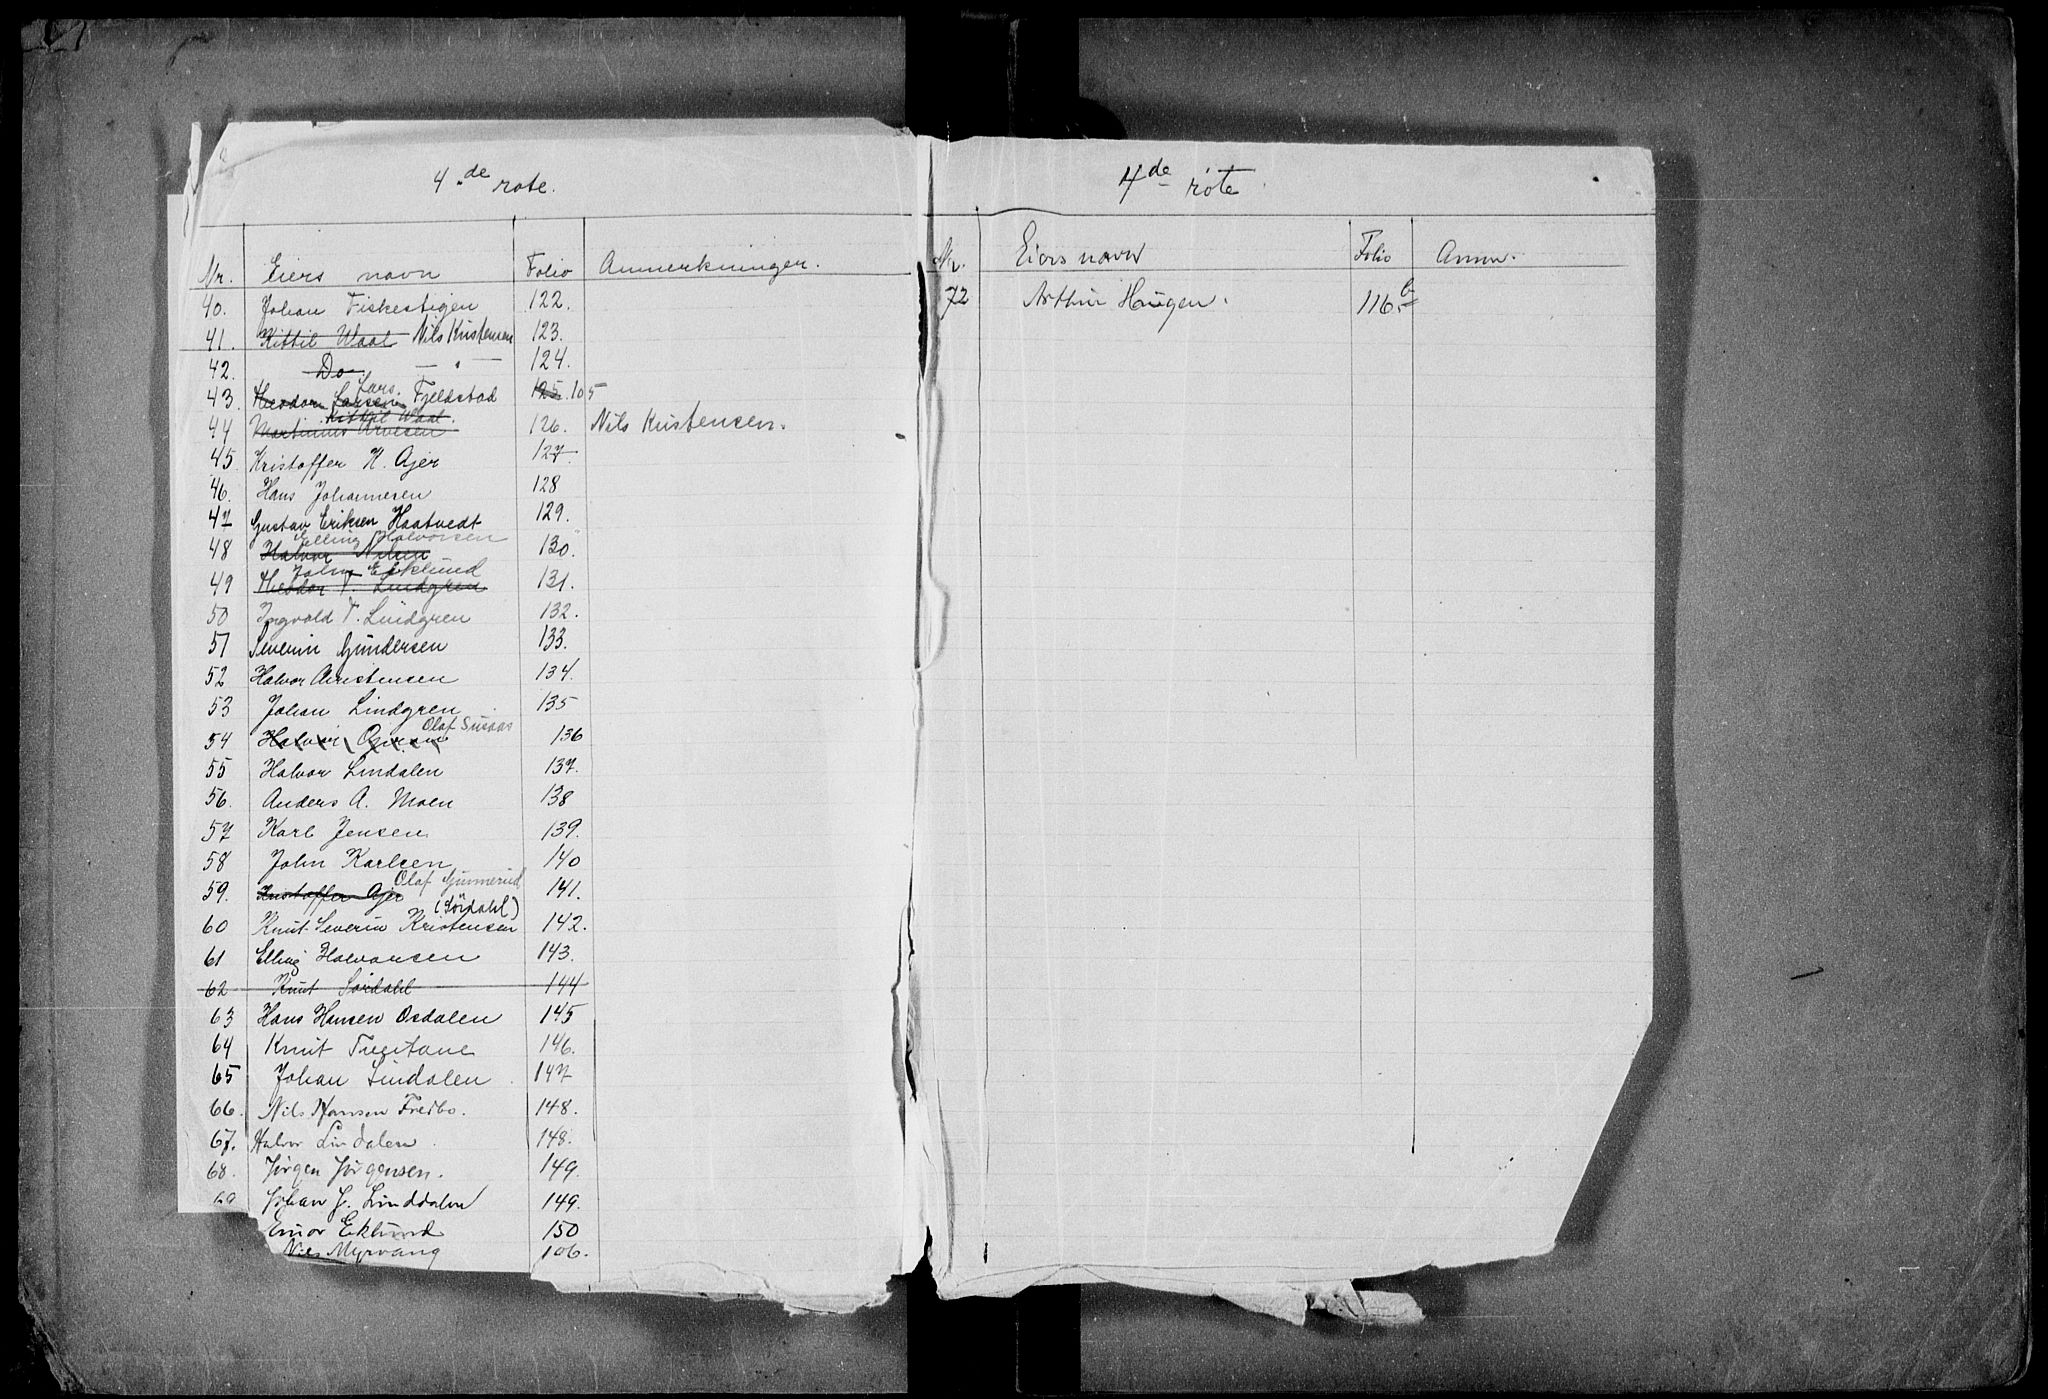 4.de rote.
Nr. Eiers navn Folio Anmerkninger.
40. Johan Fiskestigen 122.
41. Kittil Waal Nils Kristensen 123.
42. Do. — " — 124.
Lars
43. Theodor Larsen Fjeldstad 125. 105
Kittil Waal.
44 Martinius Arvesen 126. Nils Kristensen.
45 Kristoffer K. Ajer 127.
46. Hans Johannesen 128
47 Gustav Eriksen Haatvedt 129.
Elling Halvorsen
48 Halvor Nilsen 130.
John Eeklund
49 Theodor T. Lindgren 131.
50 Ingvald T. Lindgren 132.
51 Severin Gundersen 133.
52 Halvor Christensen 134.
53 Johan Lindgren 135
Olaf Susaas
54 Halvor 136
55 Halvor Lindalen 137.
56. Anders A. Moen 138
57 Karl Jensen 139.
58 John Karlsen 140
Olaf Gunnerud
59. Kristoffer Ajer 141.
(Sördahl)
60 Knut Severin Kristensen 142.
61 Elling Halvorsen 143.
62 Knut Sørdahl 144
63 Hans Hansen Osdalen 145
64 Knut Tveitane 146.
65 Johan Lindalen 147
66. Nils Hansen Fredbo. 148.
67. Halvor Lindalen 148.
68. Jørgen Jørgensen. 149.
69 Johan J. Linddalen 149.
Einar Eklund 150
Nils Myrvang 106.
4de rote
Nr. Eiers navn Folio Anm.
72 Arthur Haugen. 116.b